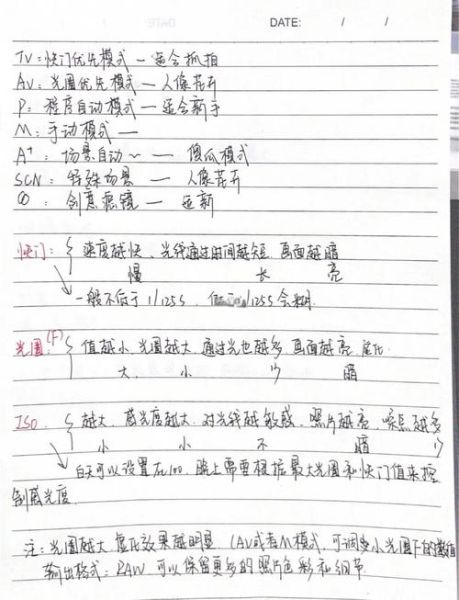 DATE: / /
TV:快门优先模式—适合抓拍
AV:光圈优先模式—人像花卉
P:程序自动模式—适合新手
M:手动模式—
A+:场景自动~—傻瓜模式
SCN:特殊场景—人像花卉
创意滤镜—适新
快门:{速度越快、光线通过时间越短 画面越暗
慢 长 亮
一般不低于1/125s, 1/125s会糊.
光圈(F):{值越小,光圈越大,通过光也越多,画面越亮,
大、小 少 暗
ISO {越大、感光度越大、对光线越敏感、照片越亮、噪点越多
小 小 不 暗 少
白天可以设置在100,晚上需要根据最大光圈和快门值来控
制感光度.
注:光圈越大,虚化效果越明显(AV或者M模式,可调受小光圈下的
输出格式:RAW 可以保留更多的照片色彩和细节.